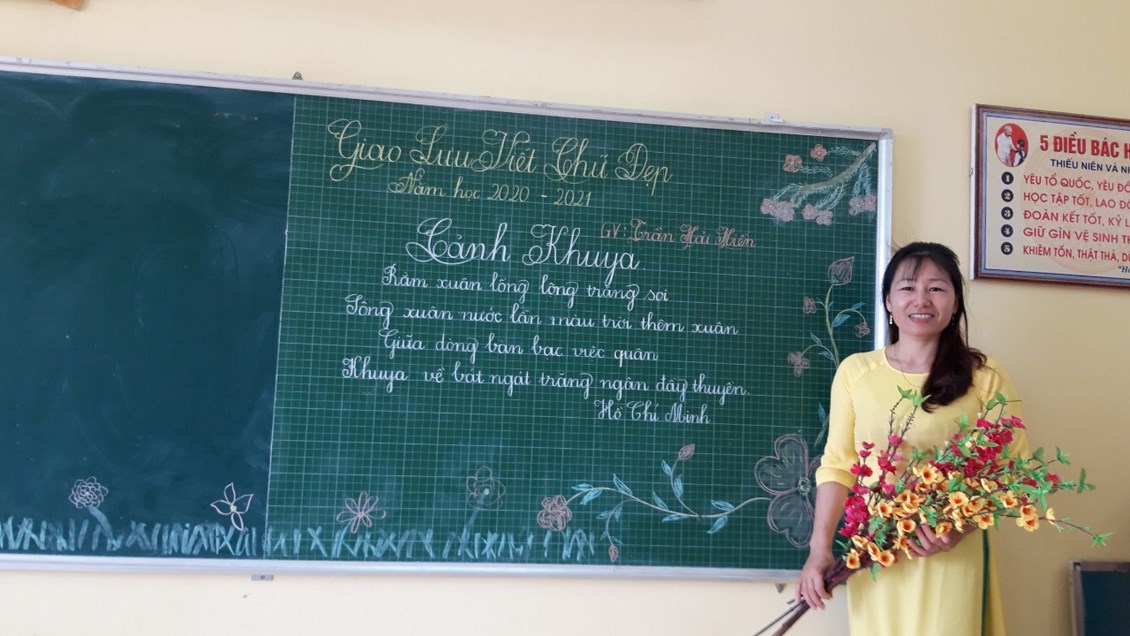 Giao Lưu Viết Chữ Đẹp
Năm học 2020 - 2021
GV: Trần Hải Hiên
Cảnh Khuya
Rằm xuân lồng lộng trăng soi
Sông xuân nước lẫn màu trời thêm xuân
Giữa dòng bàn bạc việc quân
Khuya về bát ngát trăng ngân đầy thuyền.
Hồ Chí Minh
5 ĐIỀU BÁC H
THIẾU NIÊN VÀ NH
1 YÊU TỔ QUỐC, YÊU ĐỒ
2 HỌC TẬP TỐT, LAO ĐỘ
3 ĐOÀN KẾT TỐT, KỶ L
4 GIỮ GÌN VỆ SINH TH
5 KHIÊM TỐN, THẬT THÀ, DŨ